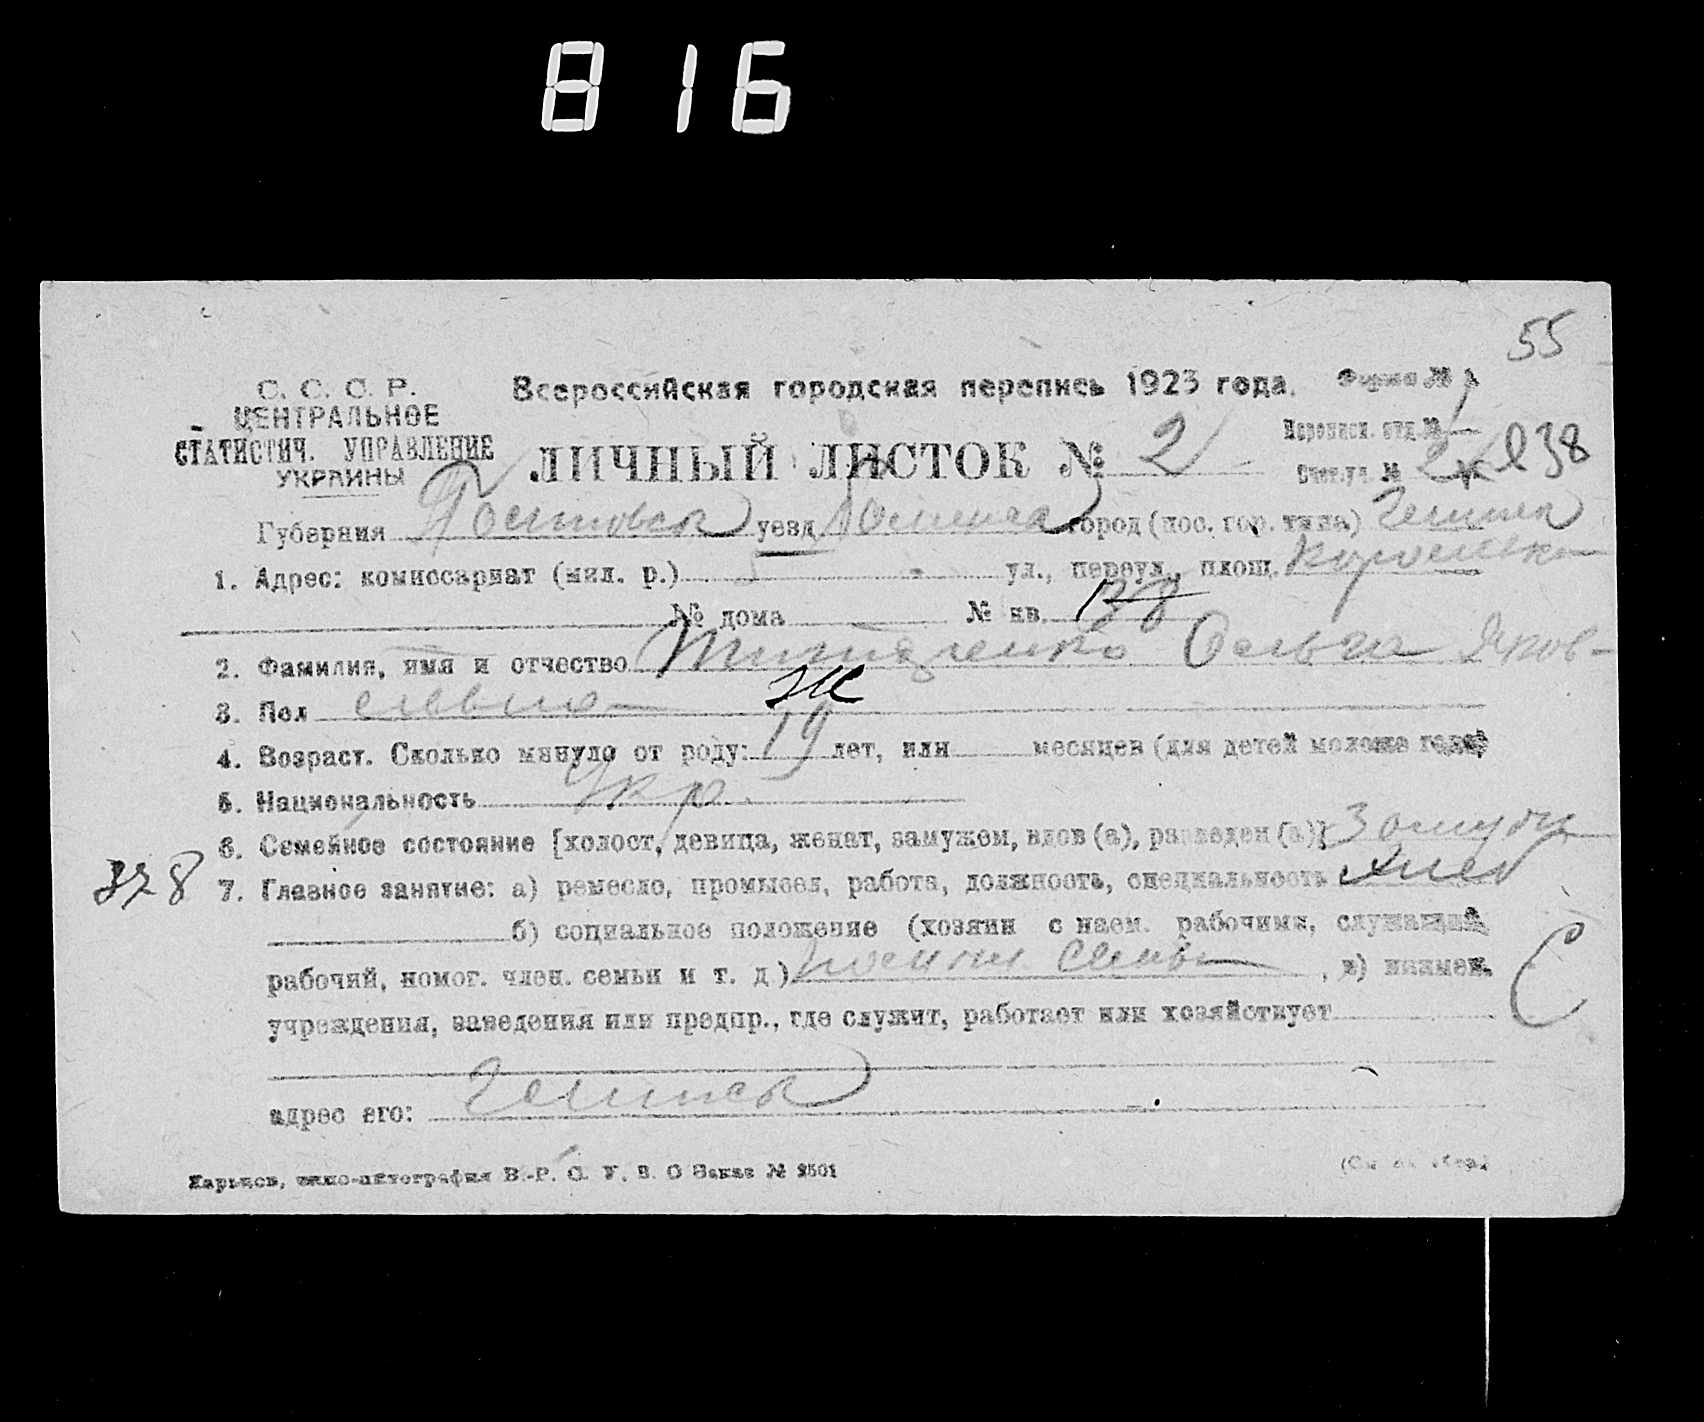 816
55
С. С. С. Р.
ЦЕНТРАЛЬНОЕ
СТАТИСТИЧ. УПРАВЛЕНИЕ
УКРАИНЫ
Всероссийская городская перепись 1923 года.
Форма № 1
ЛИЧНЫЙ ЛИСТОК № 2
Переписн. отд. №
Счетн. уч. № 2 238
Губерния уезд город (пос. гор. типа)
1. Адрес: комиссариат (мил. р.) ул., переул., площ.
№ дома № кв. 138
2. Фамилия, имя и отчество Ольга Яков-
3. Пол левна ж
4. Возраст. Сколько минуло от роду: 19 лет, или месяцев (для детей моложе года)
5. Национальность Укр
6. Семейное состояние [холост, девица, женат, замужем, вдов (а), разведен (а)] Замужн
378 7. Главное занятие: а) ремесло, промысел, работа, должность, специальность Хлеб
б) социальное положение (хозяин с наем. рабочими, служащий,
рабочий, помог. член. семьи и т. д.) семьи, в) наимен.
учреждения, заведения или предпр., где служит, работает или хозяйствует
С
адрес его:
Харьков, типо-литография В.-Р. С. У. В. О Заказ № 2501